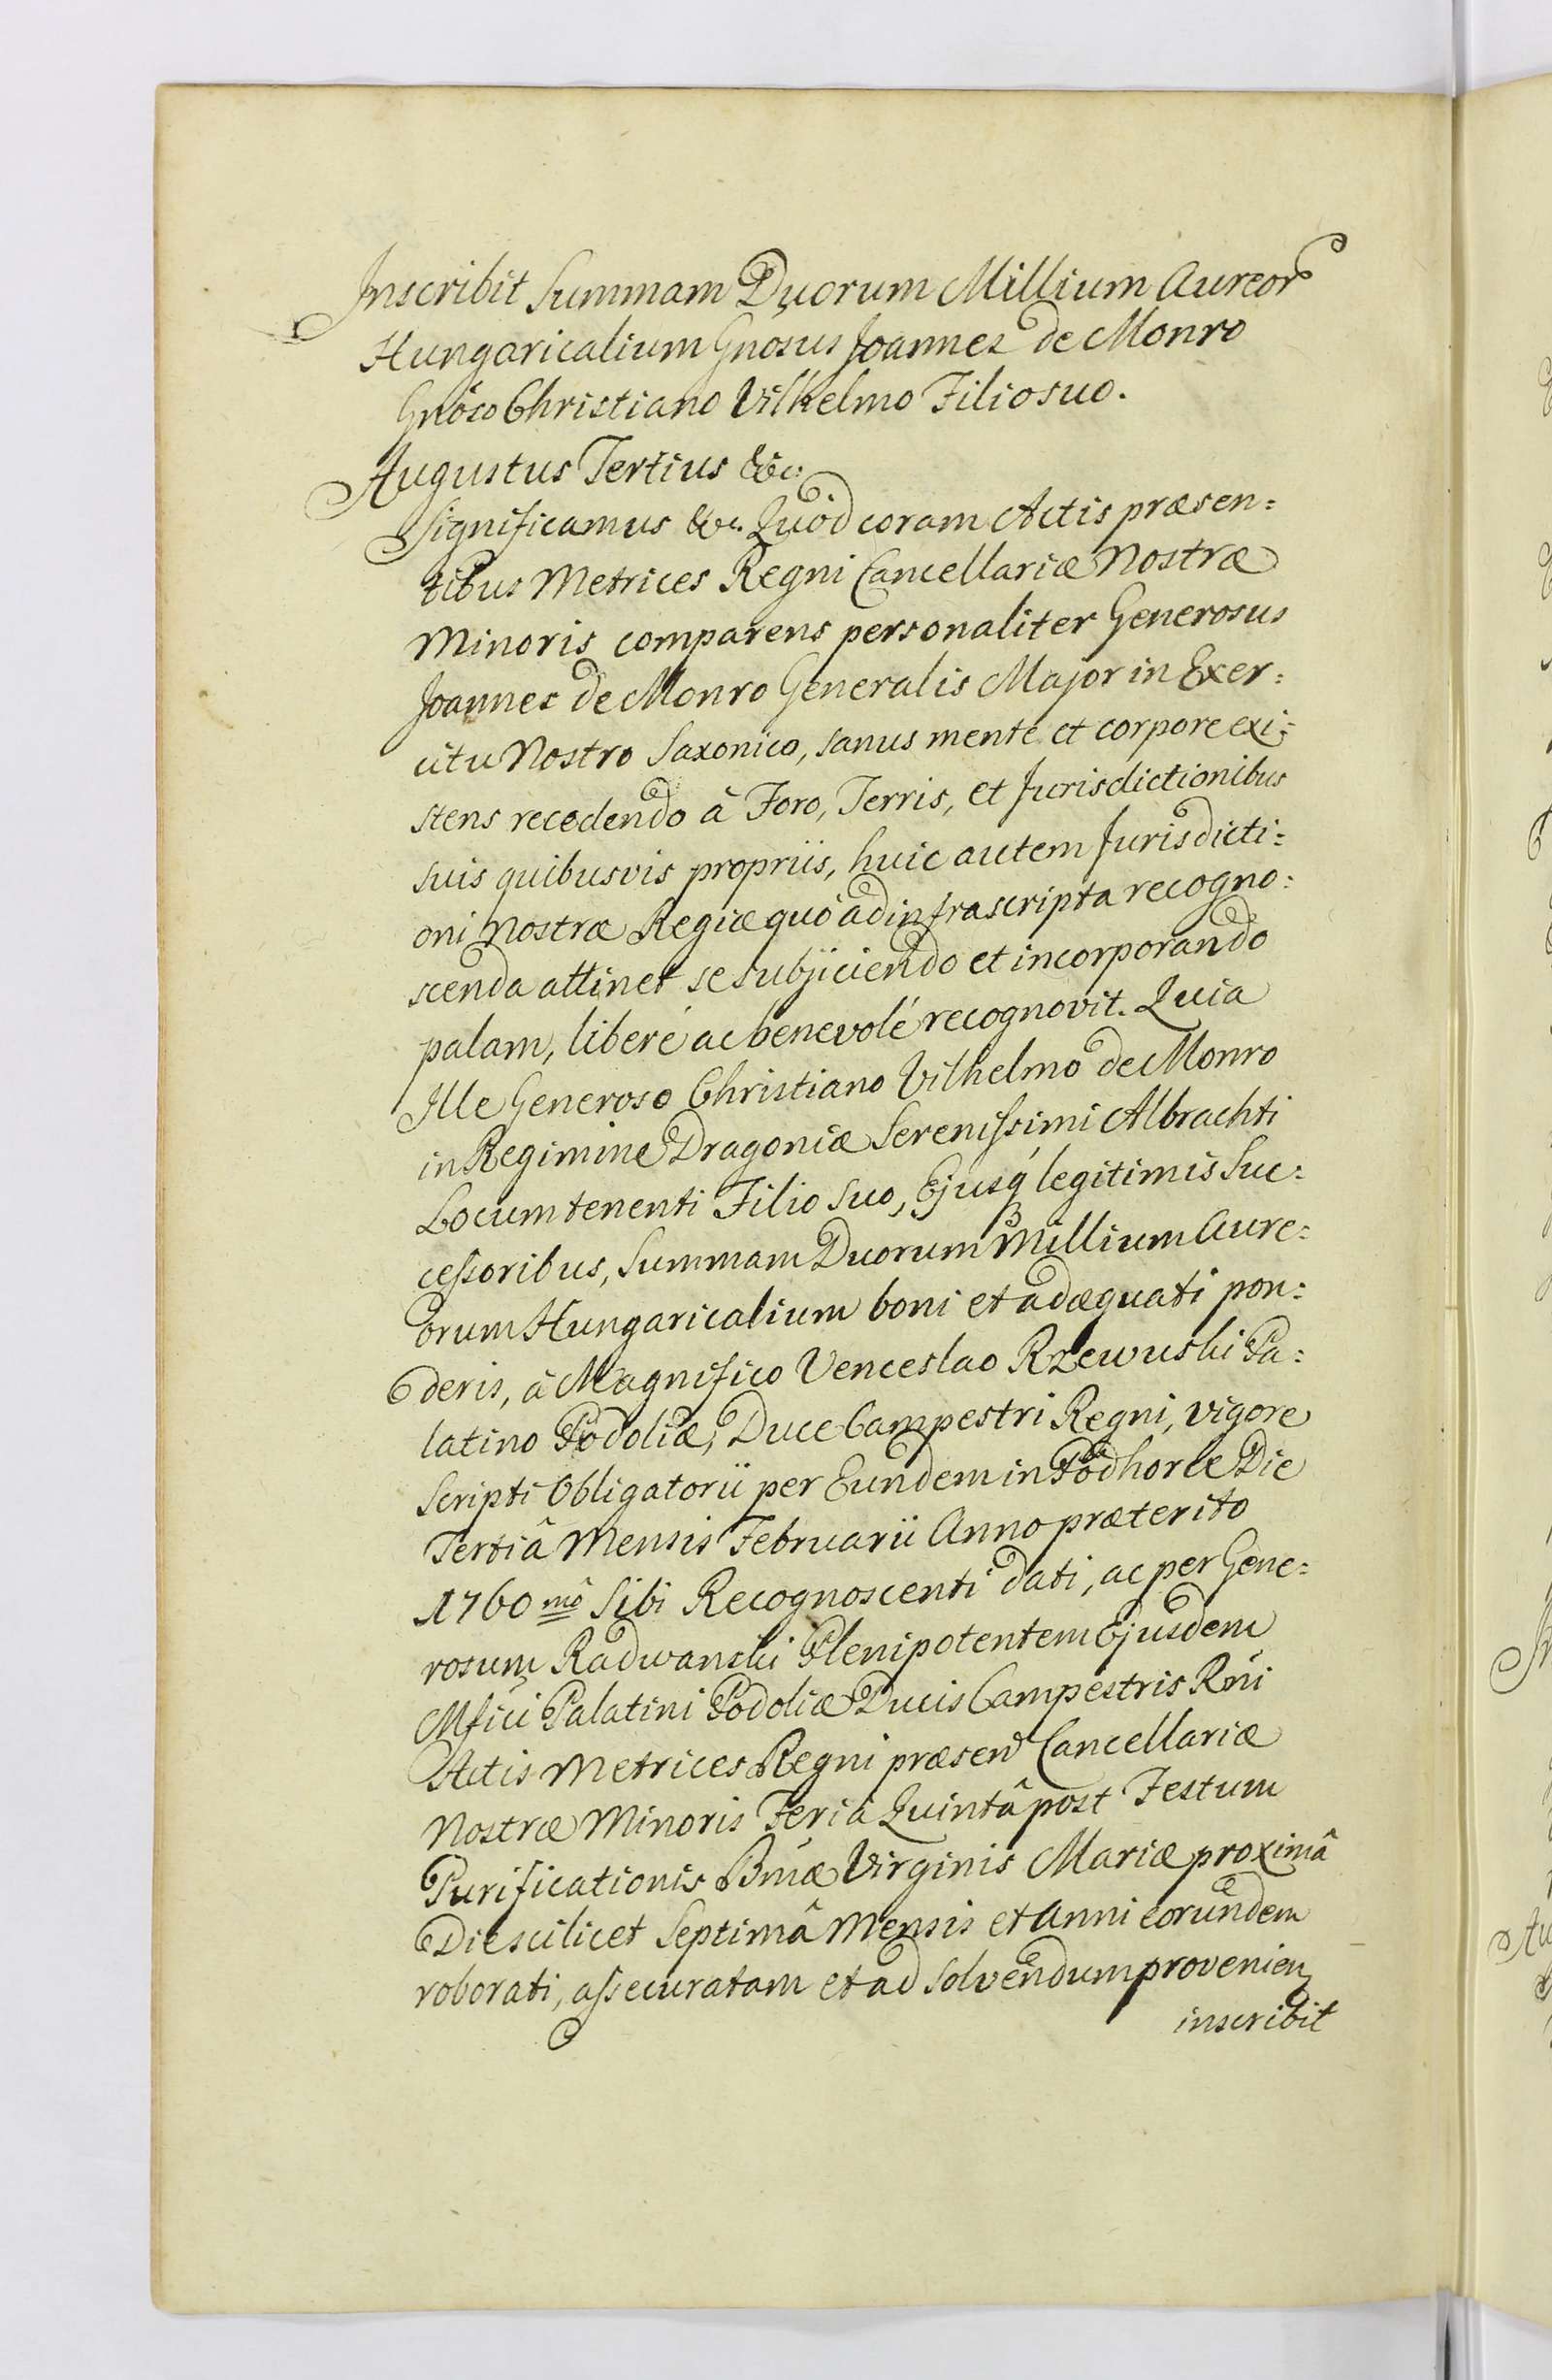 Inscribit Summam Duorum Millium Aureor
Hungaricalium Gnosus Joannes de Monro
Gnoso Christiano Vilhelmo Filio suo.
Augustus Tertius &c.
Significamus &c. Quòd coram Actis præsen=
tibus Metrices Regni Cancellariæ Nostræ
Minoris comparens personaliter Generosus
Joannes de Monro Generalis Major in Exer=
citu Nostro Saxonico, sanus mente et corpore exi=
stens recedendo à Foro, Terris, et Jurisdictionibus
suis quibusvis propriis, huic autem Jurisdicti=
oni Nostræ Regiæ quò ad infrascripta recogno=
scenda attinet se subjiciendo et incorporando
palam, liberé ac benevolé recognovit. Quia
Ille Generoso Christiano Vilhelmo de Monro
in Regimine Dragoniæ Serenissimi Albrachti
Locumtenenti Filio suo, Ejusq́ legitimis Suc=
cessoribus, Summam Duorum Millium Aure=
orum Hungaricalium boni et adæquati pon=
deris, à Magnifico Venceslao Rzewuski Pa=
latino Podoliæ, Duce Campestri Regni, vigore
Scripti Obligatorii per Eundem in Podhorce Die
Tertiâ Mensis Februarii Anno præterito
1760 mô Sibi Recognoscenti dati, ac per Gene=
rosum Radwanski Plenipotentem Ejusdem
Mfici Palatini Podoliæ Ducis Campestris Rńi
Actis Metrices Regni præsen Cancellariæ
Nostræ Minoris Feriâ Quintâ post Festum
Purificationis Bmæ Virginis Mariæ proximâ
Die scilicet Septimâ Mensis et Anni eorundem
roborati, assecuratam et ad solvendum provenien
inscribit